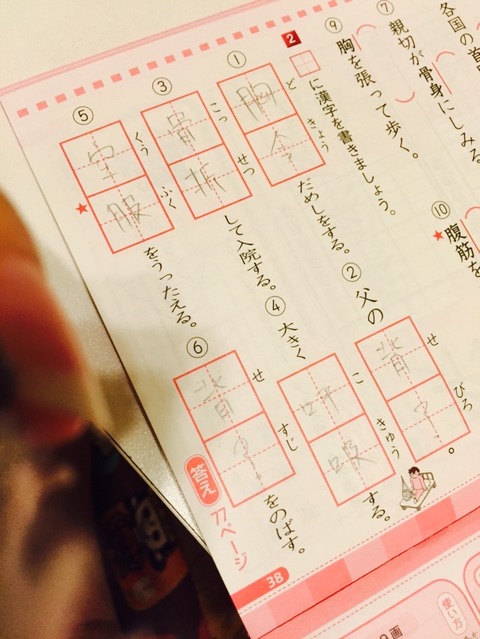 各国の首
⑦親切が骨身にしみる。
⑨胸を張って歩く。
⑩腹筋を
2 に漢字を書きましょう。
① どきょう 胸 だめしをする。
② 父の せびろ 背 。
③ こっせつ 骨 して入院する。
④ 大きく こきゅう 呼吸 する。
⑤ くうふく 空服 をうったえる。
⑥ せすじ 背 をのばす。
答え 77ページ
38
使い方
画